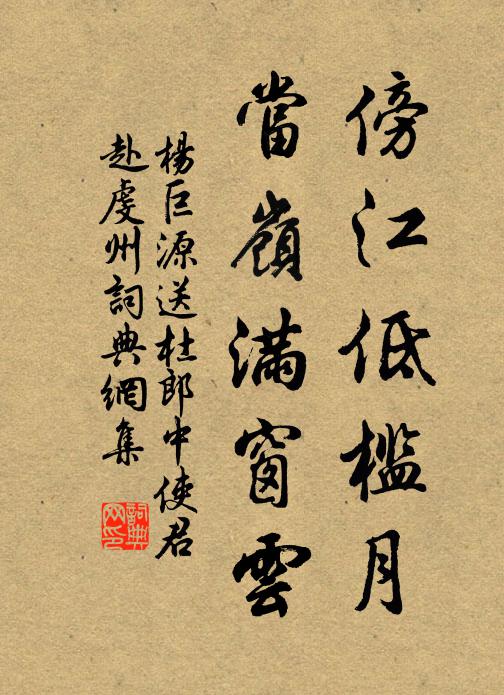 傍江低檻月
當嶺滿窗雲
楊巨源送杜郎中使君
赴虔州詞典網集
詞典网印